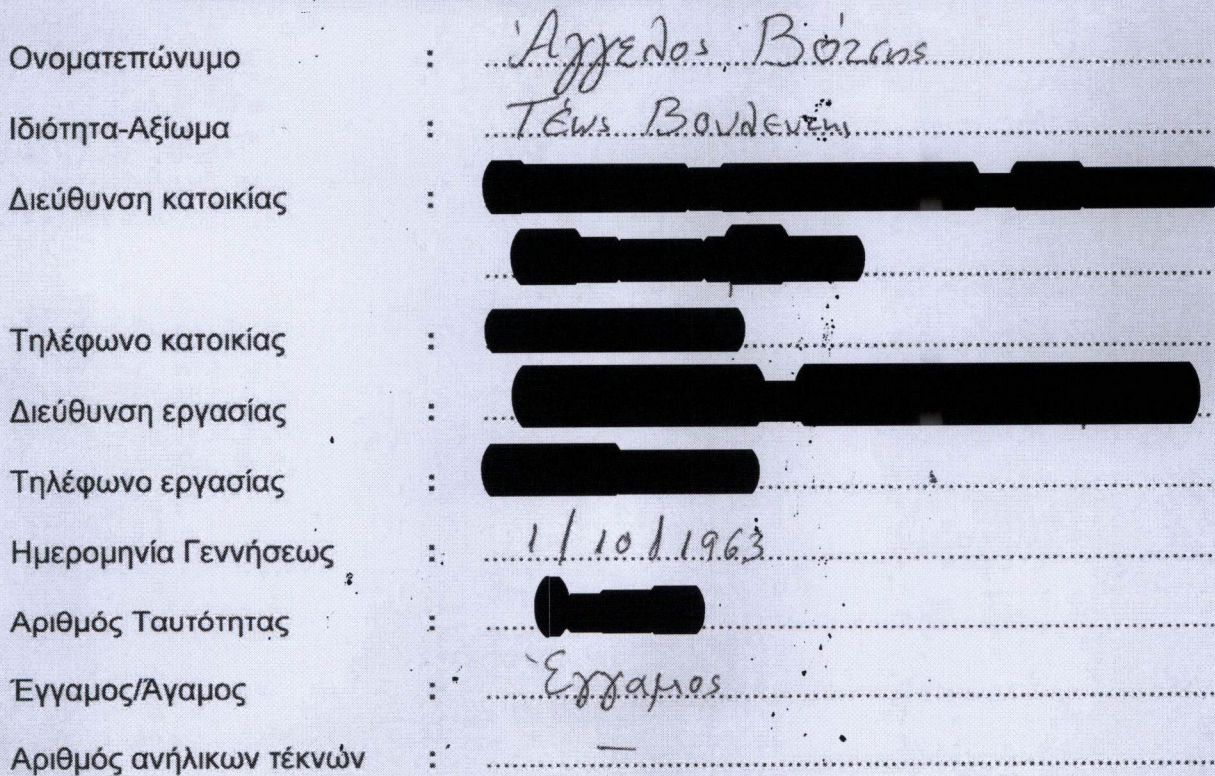 Ονοματεπώνυμο : Άγγελος Βότσης
Ιδιότητα-Αξίωμα : Τέως Βουλευτής
Διεύθυνση κατοικίας :
Τηλέφωνο κατοικίας :
Διεύθυνση εργασίας :
Τηλέφωνο εργασίας :
Ημερομηνία Γεννήσεως : 1/10/1963
Αριθμός Ταυτότητας :
Έγγαμος/Άγαμος : Έγγαμος
Αριθμός ανήλικων τέκνών : —